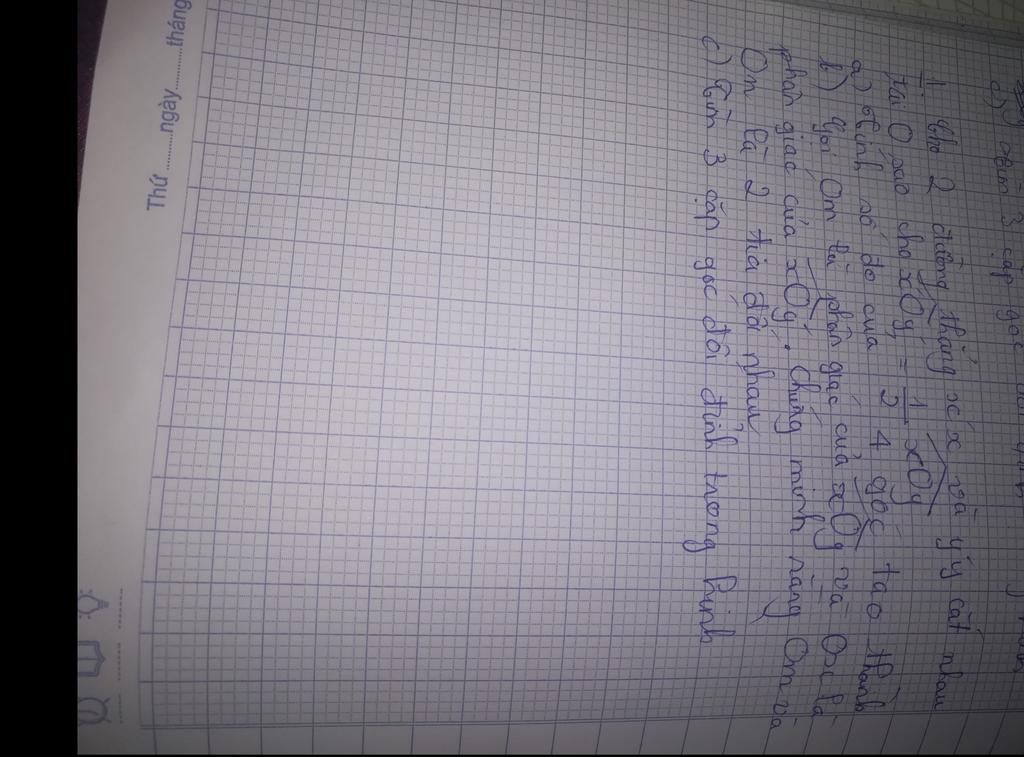 c) 3 cặp góc
1 Cho 2 đường thẳng x'x và y'y cắt nhau
tại O sao cho xOy' = 1/2 xOy
a) Tính số đo của 4 góc tạo thành
b) Gọi Om là phân giác của xOy và On là
phân giác của x'Oy'. Chứng minh rằng Om và
On là 2 tia đối nhau
c) Tìm 3 cặp góc đối đỉnh trong hình
Thứ ............ngày............tháng